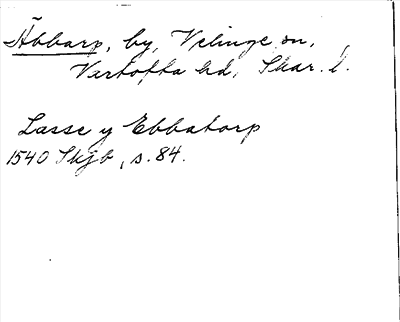 Äbbarp, by, Velinge sn,
Vartofta hd, Skar. l.
Lasse y Ebbatorp
1540 Skjb, s. 84.